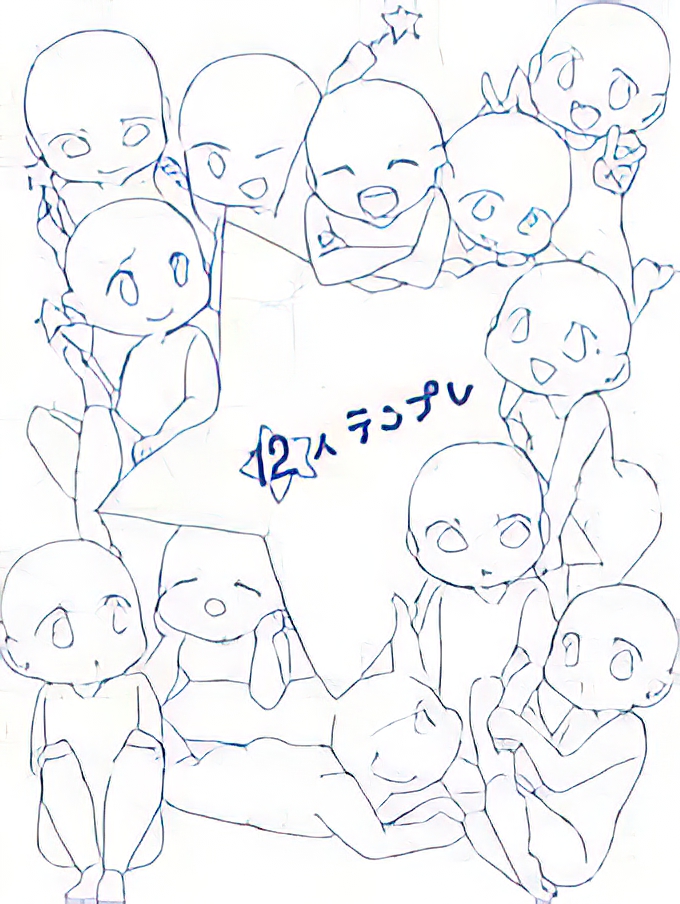 12人テンプレ